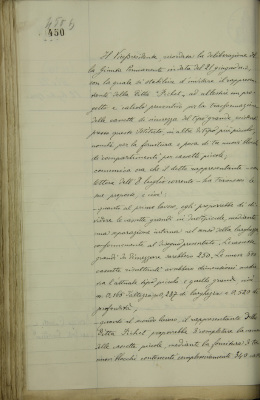 450
450
Il Presidente, ricordata la deliberazione del
la Giunta Permanente in data del 21 giugno
con la quale si stabiliva d'invitare il rappresen
tante della Ditta Pichet, ad allestire un pro
getto e relativo preventivo per la trasformazione
delle cassette di sicurezza del tipo grande, esistenti
presso questo Istituto, in altre di tipo più piccolo,
nonchè per la fornitura e posa di due nuovi blocchi
di compartimenti per casette piccole;
comunica ora che il detto rappresentante con
lettera dell' 8 luglio corrente ha trasmesso le
sue proposte, e cioè:
quanto al primo lavoro, egli proporrebbe di di
videre le cassette grandi in due più piccole, mediante
una separazione interna nel senso della larghezza
conformemente al disegno presentato. Le cassette
grandi da dimezzare sarebbero 250. Le nuove 500
cassette risultanti avrebbero dimensioni medie
tra l'attuale tipo piccolo e quello grande cioè
m. 0,165 d'altezza, m. 0,237 di larghezza e 0.520 di
profondità;
quanto al secondo lavoro, il rappresentante della
Ditta Pichet proporrebbe di completare la serie
delle cassette piccole, mediante la fornitura di due
nuovi blocchi contenenti complessivamente 340 cas